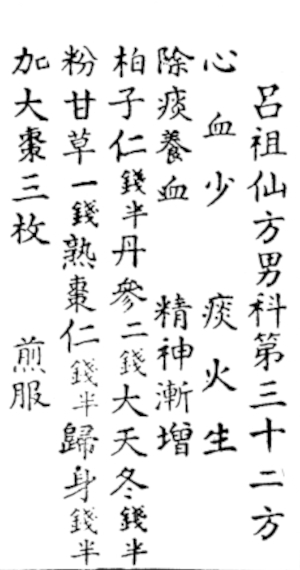 呂祖仙方男科第三十二方
心血少　痰火生
除痰養血　精神漸增
柏子仁錢半丹參二錢大天冬錢半
粉甘草一錢熟棗仁錢半歸身錢半
加大棗三枚　煎服